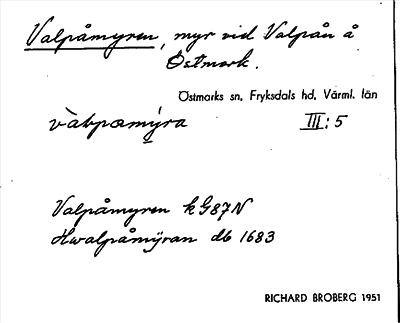 Valpåmyren, myr vid Valpån å
Östmark.
Östmarks sn, Fryksdals hd, Värml. län
III: 5
Valpåmyren k G87N
Hwalpåmÿran db 1683
RICHARD BROBERG 1951